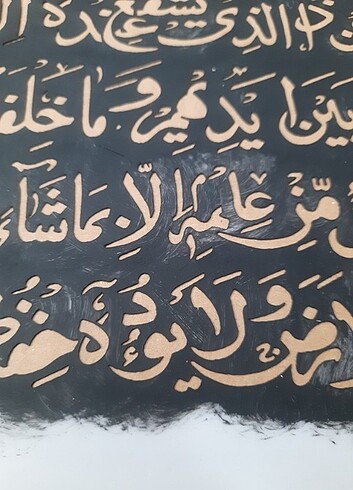 ذا الذي يشفع عنده إلا
بين ايديهم وما خلفهم
من علمه إلا بما شاء
الارض ولا يؤده حفظ